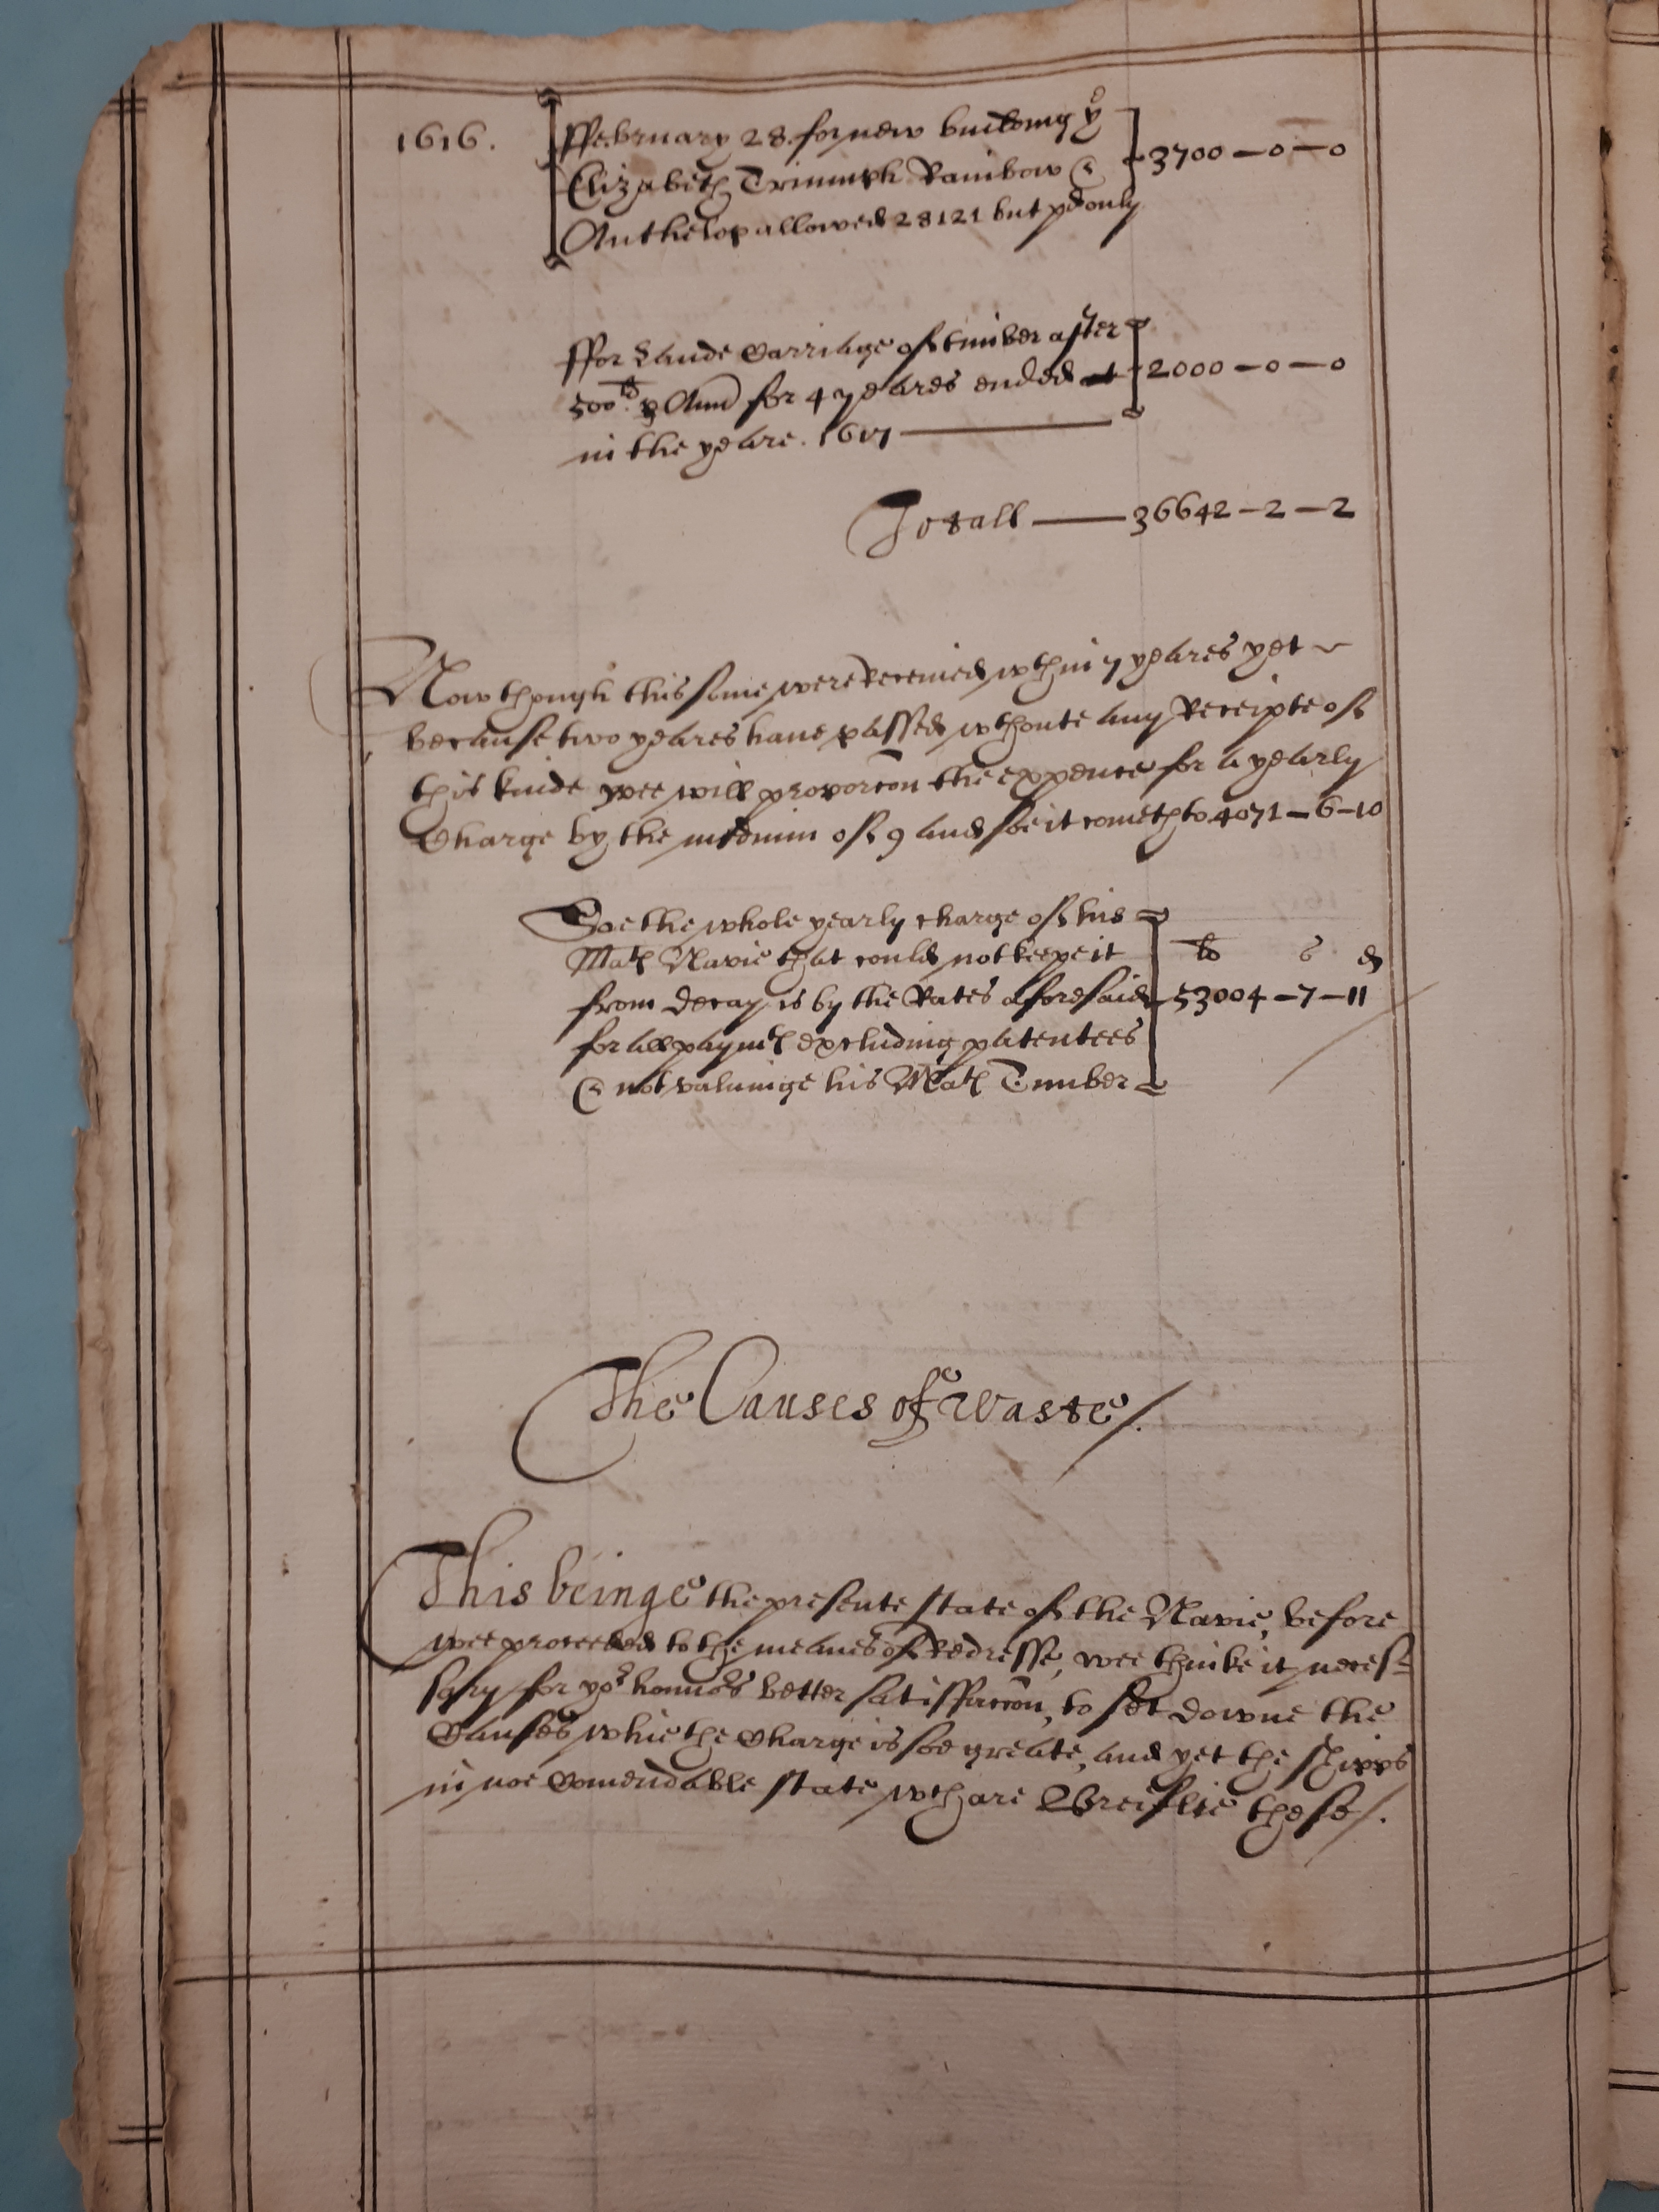 1616. ffebruary 28 for new buildinng ye
Elizabeth Triumph Rainbow &
Anthelop allowed 28121 but pd only
3700 — 0 — 0
ffor Lande Carriage of timber after
500li p Ann for 4 yeares ended
in the yeare. 1617
2000 — 0 — 0
Totall — 36642 — 2 — 2
Now though this sume were received wthin 7 yeares yet
because two yeares haue passed wthoute any Receipte of
this kinde wee will proporcon the expence for a yearly
Charge by the medium of 9 and soe it cometh to 4071 — 6 — 10
Soe the whole yearly charge of his
Mats Navie that could not keepe it
from decay is by the Rates aforesaid
for all paymts excluding patentees
& not valuinge his Mats Timber
li s d
53004 — 7 — 11
The Causes of Waste/.
This beinge the presente state of the Navie, before
wee proceeded to the meanes of Redresse, wee thinke it neces=
sary for yor honnors better satisfaccon, to set downe the
Causes whie the Charge is soe greate, and yet the Shipps
in noe Comendable state wth are Breiflie these/.